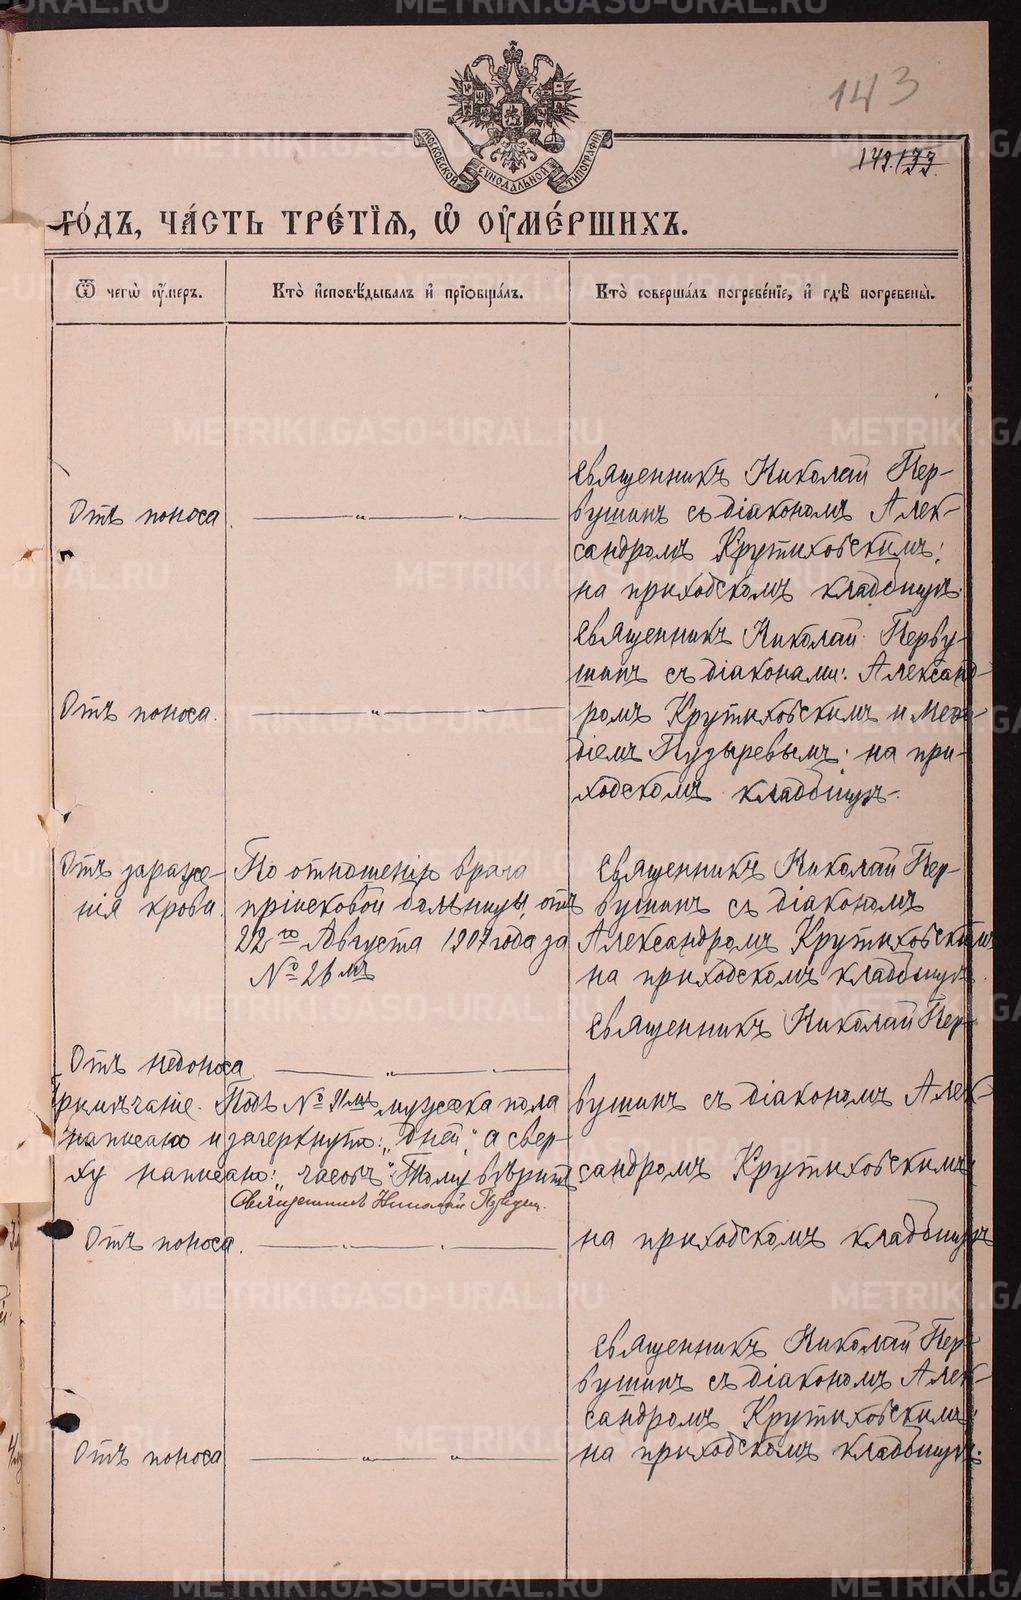 143
142. 177.
МОСКОВСКОЙ СѴНОДАЛЬНОЙ ТИПОГРАФІИ
го́дъ, ча́сть тре́тїѧ, ѡ҆ ᲂу҆ме́ршихъ.
Ѿ чегѡ̀ ᲂу҆́меръ.
Кто̀ и҆сповѣ́дывалъ и҆ прїѡбща́лъ.
Кто̀ соверша́лъ погребе́нїе, и҆ гдѣ̀ погребены̀.
Отъ поноса.
Священникъ Николай Пер-
вушинъ съ діакономъ Алек-
сандромъ Крутиховскимъ:
на приходскомъ кладбищѣ.
Отъ поноса.
Священникъ Николай Перву-
шинъ съ діаконами: Александ-
ромъ Крутиховскимъ и Меѳо-
діемъ Пузыревымъ: на при-
ходскомъ кладбищѣ.
Отъ зараже-
нія крови.
По отношенію врача
пріисковой больницы, отъ
22го Августа 1907 года за
№ 26мъ
Священникъ Николай Пер-
вушинъ съ діакономъ
Александромъ Крутиховскимъ
на приходскомъ кладбищѣ.
Отъ недоноса.
Священникъ Николай Пер-
вушинъ съ діакономъ Алек-
сандромъ Крутиховскимъ:
на приходскомъ кладбищѣ
Примѣчаніе. Подъ № 91мъ мужска пола
написано и зачеркнуто: „дней“ а свер-
ху написано: „часовъ“. Тому вѣрить
Священникъ Николай
Отъ поноса.
Отъ поноса
Священникъ Николай Пер-
вушинъ съ діакономъ Алек-
сандромъ Крутиховскимъ:
на приходскомъ кладбищѣ.
METRIKI.GASO-URAL.RU